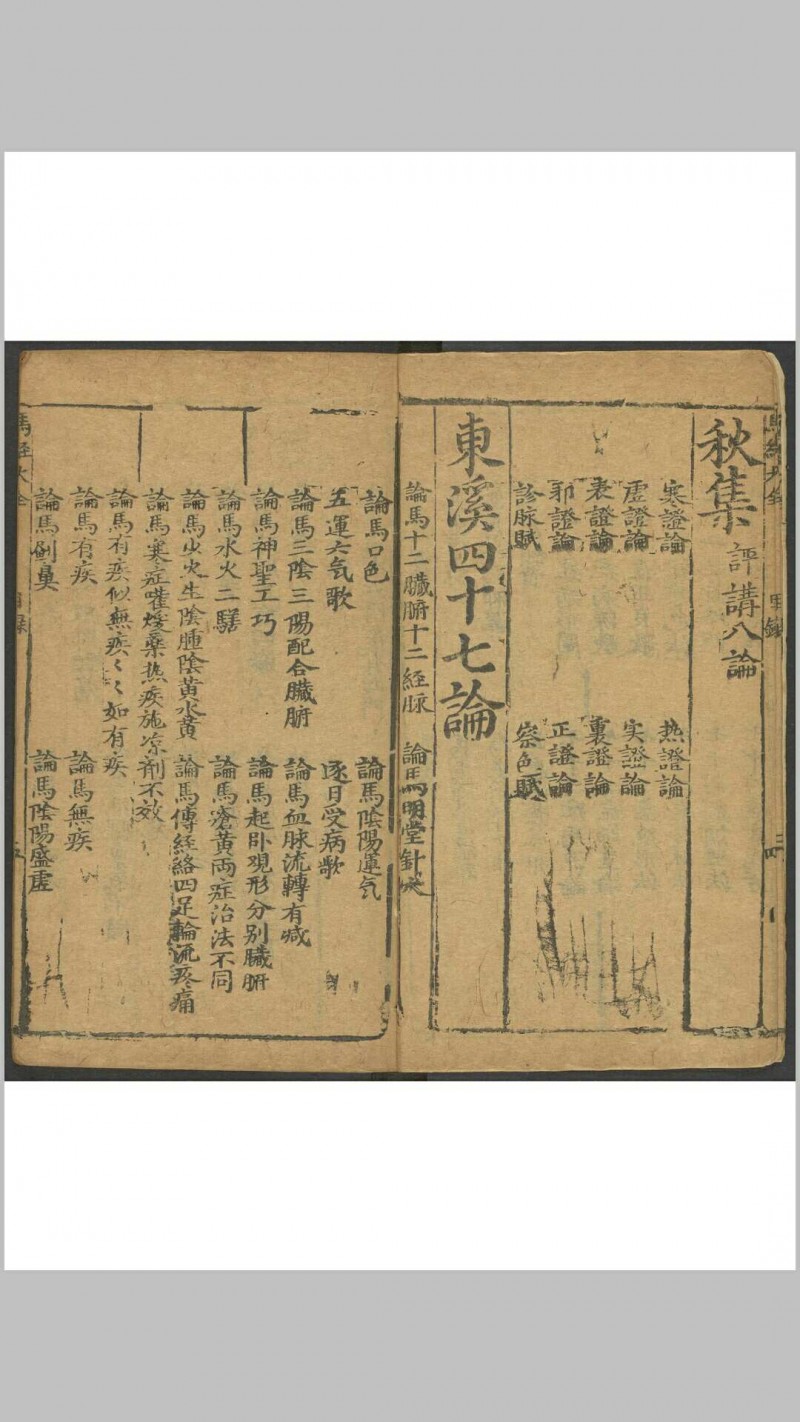 秋集 評講八論
寒證論 热證論
虛證論 实證論
表證論 裏證論
邪證論 正證論
診脉賦 察色賦
東溪四十七論
論馬十二臟腑十二経脉 論馬明堂針穴
論馬口色 論馬陰陽運気
五運六気歌 逐日受病歌
論馬三陰三陽配合臟腑 論馬血脉流轉有喊
論馬神聖工巧 論馬起卧观形分别臟腑
論馬水火二騞 論馬瘡黄両症治法不同
論馬出火生陰腫陰黄水黄 論馬傳経絡四足輪流疼痛
論馬寒症嚾煖藥热疾施凉剤不效
論馬有疾似無疾〻〻如有疾
論馬有疾 論馬無疾
論馬倒臭 論馬陰陽盛虛